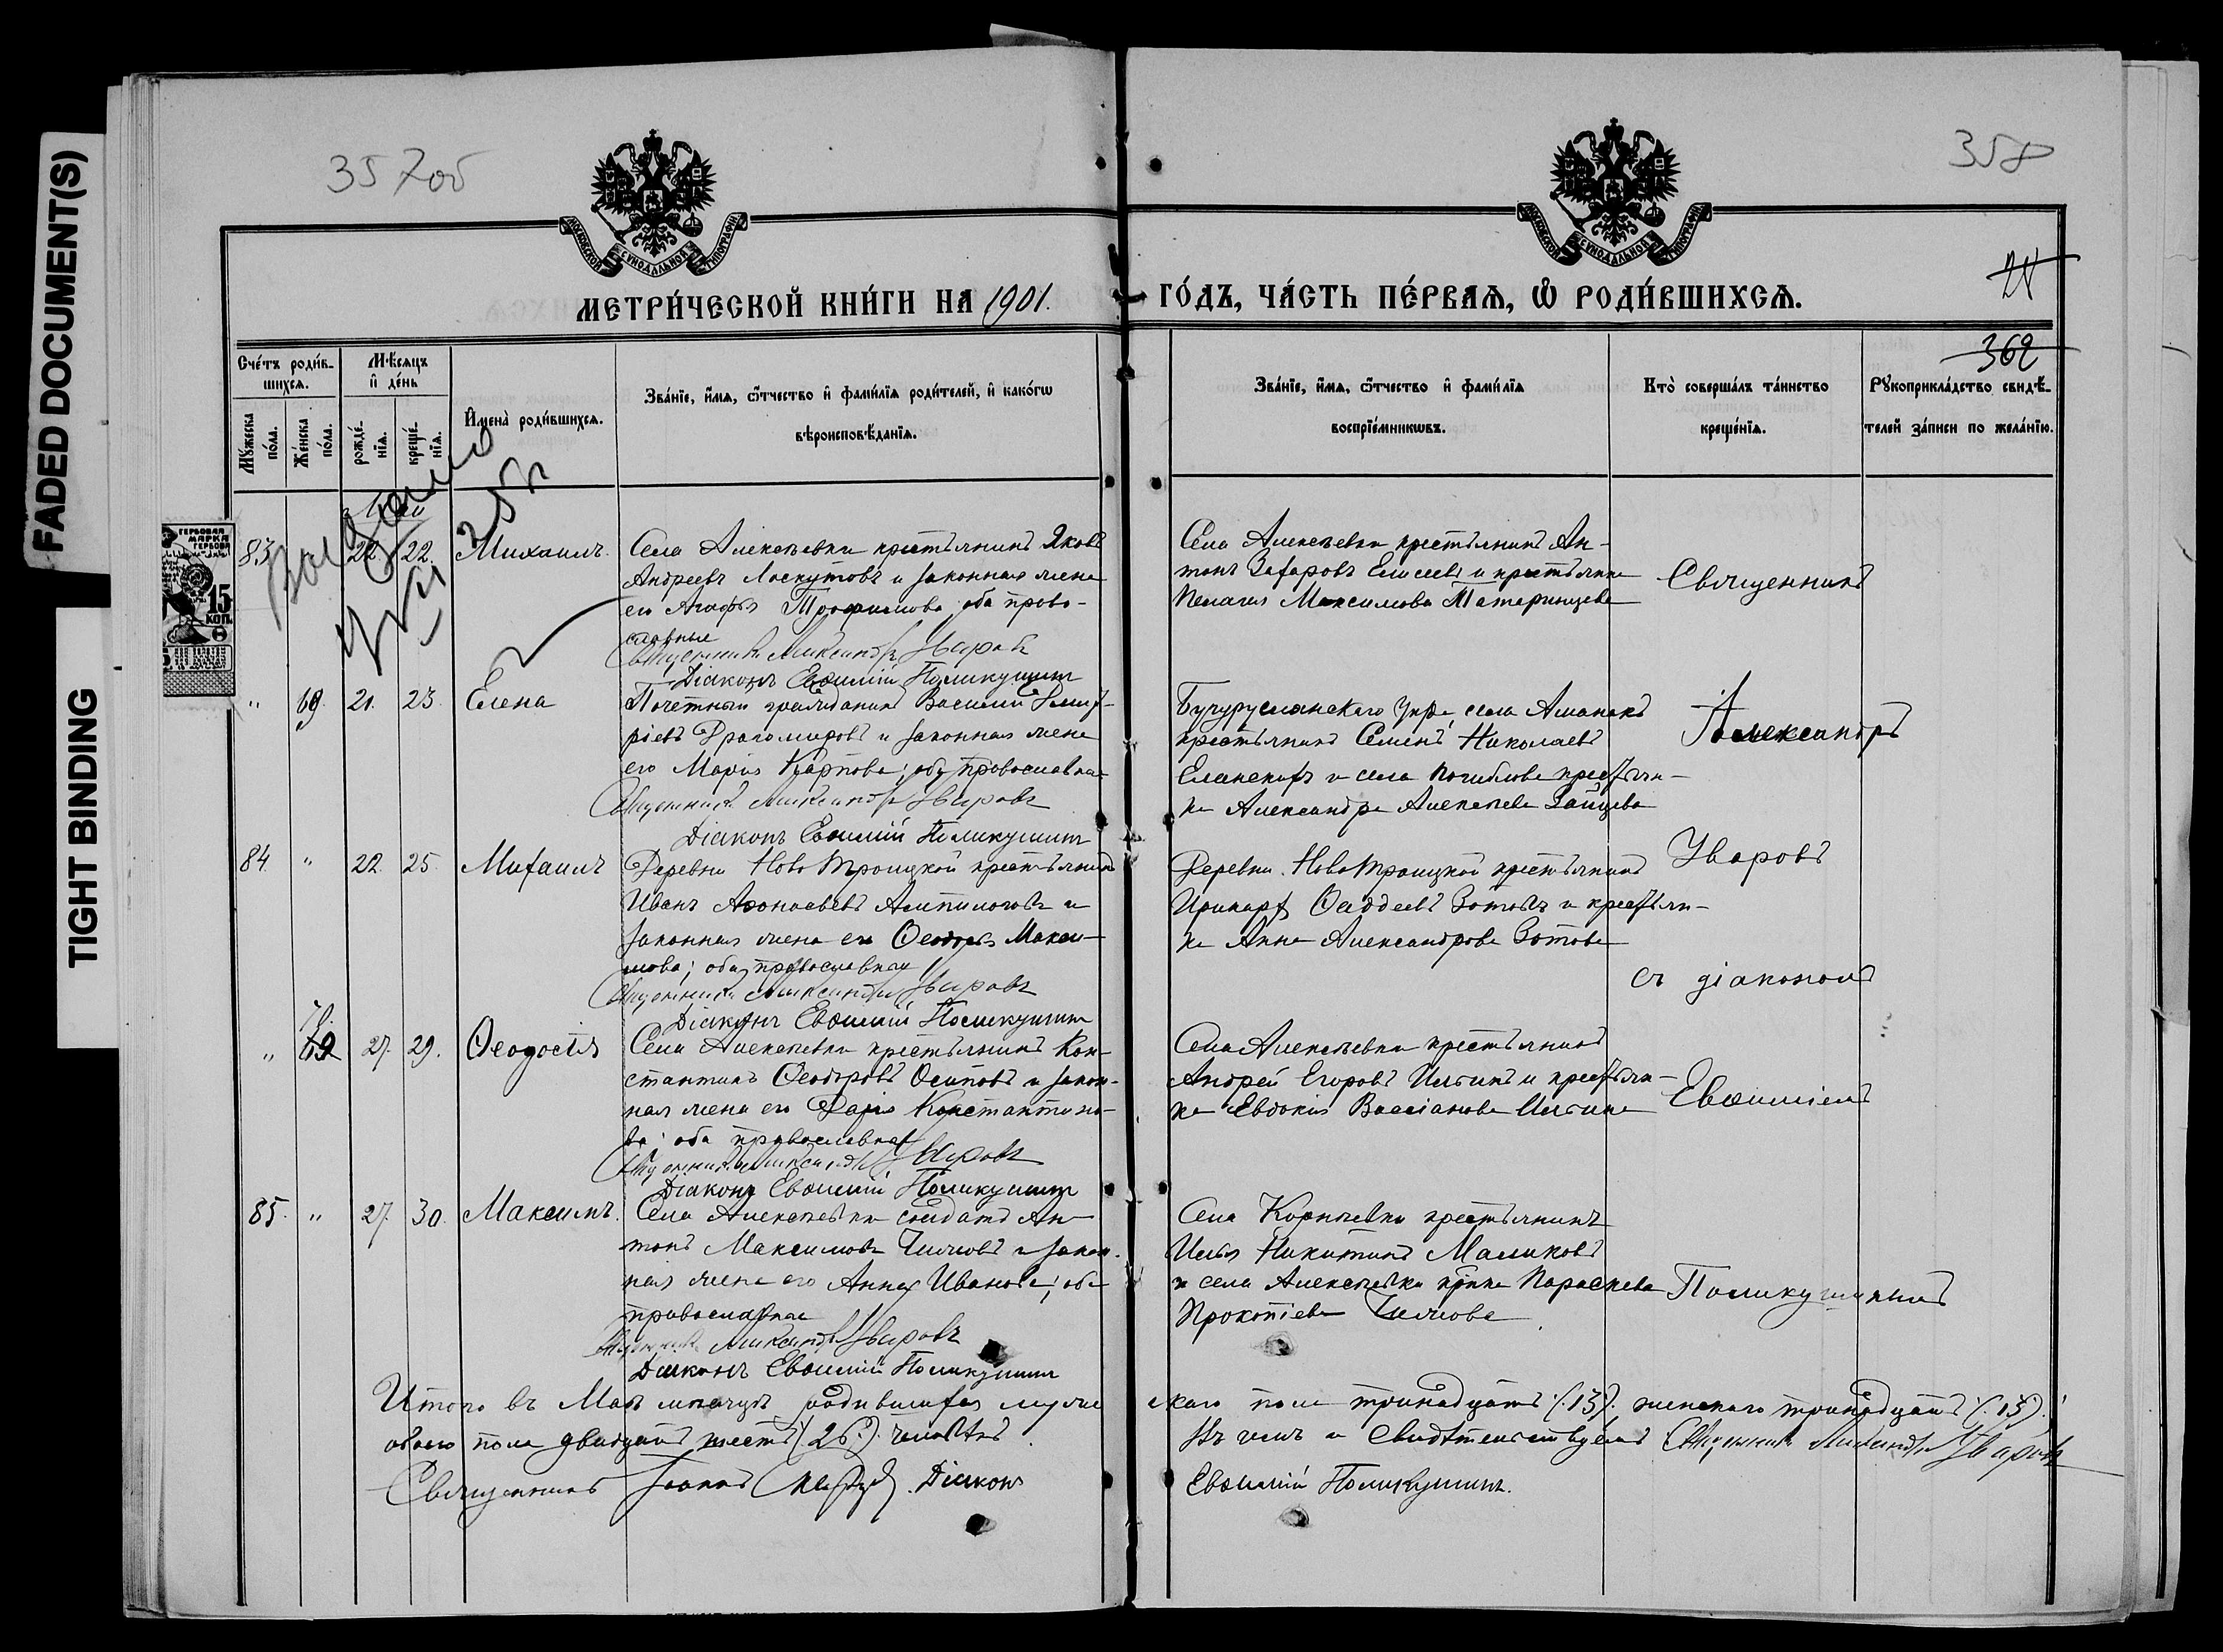 FADED DOCUMENT(S)
TIGHT BINDING
357об
358
МОСКОВСКОЙ СѴНОДАЛЬНОЙ ТИПОГРАФІИ
МОСКОВСКОЙ СѴНОДАЛЬНОЙ ТИПОГРАФІИ
МЕТРИ́ЧЕСКОЙ КНИ́ГИ НА 1901.
ГО́ДЪ, ЧА́СТЬ ПЕ́РВАѦ, Ѡ҆ РОДИ́ВШИХСѦ.
362
Сче́тъ роди́в-
шихсѧ.
Мꙋ́жеска
по́ла.
Же́нска
по́ла.
Мѣ́сѧцъ
и҆ де́нь
рожде́-
нїѧ.
креще́-
нїѧ.
И҆мена̀ роди́вшихсѧ.
Зва́нїе, и҆́мѧ, ѻ҆́тчество и҆ фами́лїѧ роди́телей, и҆ како́гѡ
вѣроисповѣ́данїѧ.
Зва́нїе, и҆́мѧ, ѻ҆́тчество и҆ фами́лїѧ
воспрїе́мникѡвъ.
Кто̀ соверша́лъ та́инство
креще́нїѧ.
Рꙋкоприкла́дство свидѣ́-
телей за́писи по жела́нїю.
ГЕРБОВАЯ
МАРКА
15
КОП.
Выдано
Май
83 22. 22. Михаилъ.
Села Алексѣевки крестьянинъ Яковъ
Андреевъ Лоскутовъ и законная жена
его Агафья Трофимова; оба право-
славные
Священникъ Александръ Уваровъ
Діаконъ Евѳимій Поликушинъ
Села Алексѣевки крестьянинъ Ан-
тонъ Захаровъ Елисеевъ и крестьянка
Пелагия Максимова Татаринцева
Священникъ
" 69. 21. 23. Елена
Почетный гражданинъ Василий Димит-
ріевъ Драгомировъ и законная жена
его Марія Карпова; оба православные
Священникъ Александръ Уваровъ
Діаконъ Евѳимій Поликушинъ
Бугурусланскаго уѣзда, села Аманакъ
крестьянинъ Семенъ Николаевъ
и села крестьян-
ка Александра Алексѣева Зайцева
Александръ
84. " 22. 25. Михаилъ
Деревни Ново Троицкой крестьянинъ
Иванъ Аѳонасьевъ и
законная жена его Ѳеодора Макси-
мова; оба православные
Священникъ Александръ Уваровъ
Діаконъ Евѳимій Поликушинъ
Деревни Ново Троицкой крестьянинъ
Иринархъ Ѳаддеевъ Зотовъ и крестьян-
ка Анна Александрова Зотова
Уваровъ
съ діакономъ
" 27. 29. Ѳеодосія
Села Алексѣевки крестьянинъ Кон-
стантинъ Ѳеодоровъ Осиповъ и закон-
ная жена его Дарія Константино-
ва; оба православные
Священникъ Александръ Уваровъ
Діаконъ Евѳимій Поликушинъ
Села Алексѣевки крестьянинъ
Андрей Егоровъ Ильинъ и крестьян-
ка Евдокія Вассіанова Ильина
Евѳиміемъ
85. " 27. 30. Максимъ.
Села Алексѣевки солдатъ Ан-
тонъ Максимовъ и закон-
ная жена его Анна Иванова; оба
православные
Священникъ Александръ Уваровъ
Діаконъ Евѳимій Поликушинъ
Села крестьянинъ
Илья Никитинъ Маликовъ
и села Алексѣевки Параскева
Прокопіева
Поликушинымъ
Итого въ Маѣ мѣсяцѣ родившихся муже
скаго пола тринадцать (.13.) женскаго тринадцать (.13.)
обоего пола двадцать шесть (.26.) человѣкъ.
Въ чемъ и свидѣтельствуемъ Священникъ Александръ Уваровъ
Священникъ Іоаннъ Діаконъ
Евѳимій Поликушинъ.